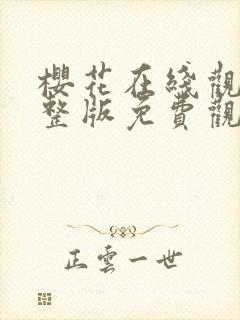 櫻花在綫觀
整版免費觀
正雲一世